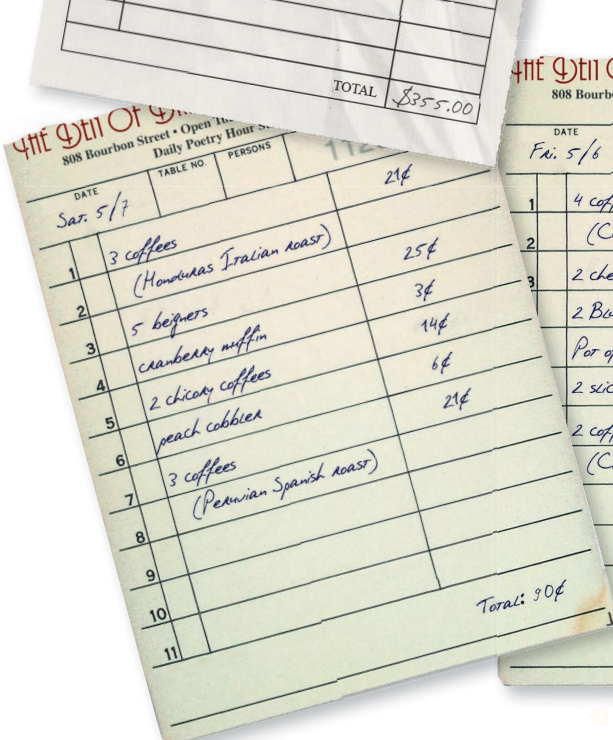 TOTAL $355.00
THE DEN OF
808 Bourbon Street • Open
Daily Poetry Hour
DATE TABLE NO. PERSONS
Sat. 5/7
21¢
1 3 coffees
(Honduras Italian roast)
2 25¢
3 5 beignets 3¢
4 cranberry muffin 14¢
5 2 chicory coffees 6¢
6 peach cobbler 21¢
7 3 coffees
(Peruvian Spanish roast)
8
9
10
11
Total: 90¢
THE DEN
808 Bourb
DATE
Fri. 5/6
1 4 cof
(C
2
2 che
3
2 Blu
Pot o
2 slic
2 cof
(C